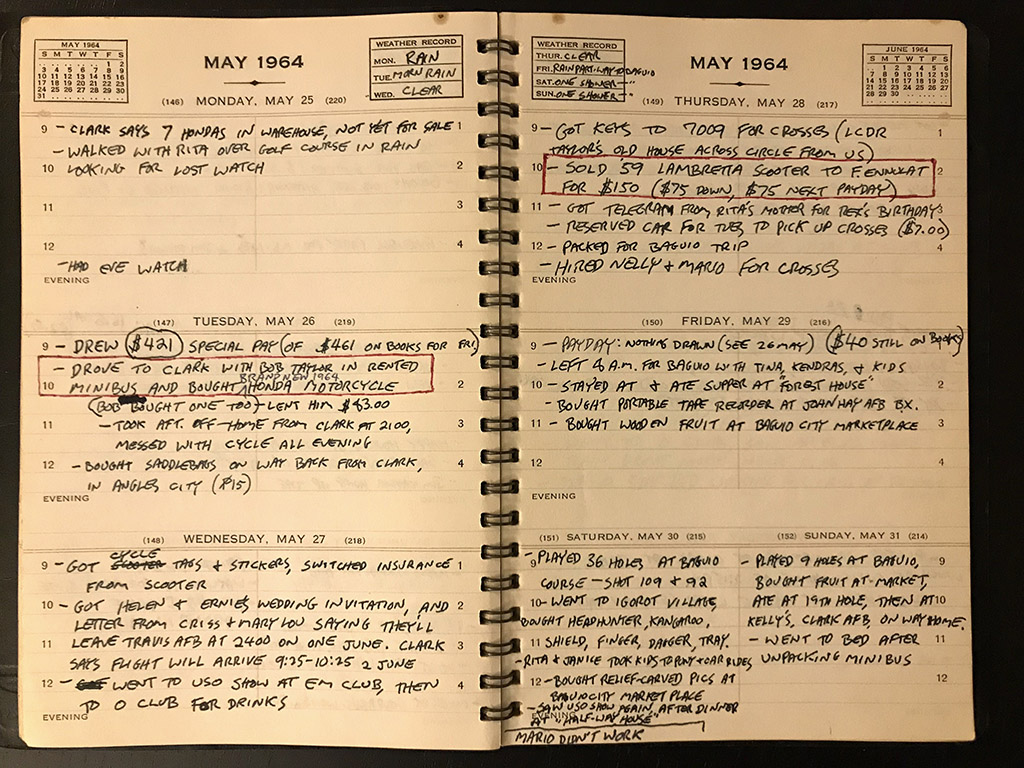 MAY 1964
S M T W T F S
1 2
3 4 5 6 7 8 9
10 11 12 13 14 15 16
17 18 19 20 21 22 23
24 25 26 27 28 29 30
31
MAY 1964
WEATHER RECORD
MON. RAIN
TUE. MORN RAIN
WED. CLEAR
(146) MONDAY, MAY 25 (220)
9 - CLARK SAYS 7 HONDAS IN WAREHOUSE, NOT YET FOR SALE 1
- WALKED WITH RITA OVER GOLF COURSE IN RAIN
10 LOOKING FOR LOST WATCH 2
11 3
12 4
- HAD EVE WATCH
EVENING
(147) TUESDAY, MAY 26 (219)
9 - DREW $421 SPECIAL PAY (OF $461 ON BOOKS FOR FRI)
- DROVE TO CLARK WITH BOB TAYLOR IN RENTED
BRAND NEW 1964
10 MINIBUS AND BOUGHT A HONDA MOTORCYCLE 2
(BOB BOUGHT ONE TOO) - LENT HIM $43.00
11 - TOOK AFT. OFF - HOME FROM CLARK AT 2100, 3
MESSED WITH CYCLE ALL EVENING
12 - BOUGHT SADDLEBAGS ON WAY BACK FROM CLARK, 4
IN ANGLES CITY ($15)
EVENING
(148) WEDNESDAY, MAY 27 (218)
CYCLE
9 - GOT SCOOTER TAGS & STICKERS, SWITCHED INSURANCE 1
FROM SCOOTER
10 - GOT HELEN & ERNIE'S WEDDING INVITATION, AND 2
LETTER FROM CRISS & MARY LOU SAYING THEY'LL
11 LEAVE TRAVIS AFB AT 2400 ON ONE JUNE. CLARK 3
SAYS FLIGHT WILL ARRIVE 9:25-10:25 2 JUNE
12 - WENT TO USO SHOW AT EM CLUB, THEN 4
TO O CLUB FOR DRINKS
EVENING
WEATHER RECORD
THUR. CLEAR
FRI. RAIN PART-WAY TO BAGUIO
SAT. ONE SHOWER - "
SUN. ONE SHOWER - "
MAY 1964
JUNE 1964
S M T W T F S
1 2 3 4 5 6
7 8 9 10 11 12 13
14 15 16 17 18 19 20
21 22 23 24 25 26 27
28 29 30
(149) THURSDAY, MAY 28 (217)
9 - GOT KEYS TO 7009 FOR CROSSES (LCDR 1
TAYLOR'S OLD HOUSE ACROSS CIRCLE FROM US)
10 - SOLD '59 LAMBRETTA SCOOTER TO F. ENNULAT 2
FOR $150 ($75 DOWN, $75 NEXT PAYDAY)
11 - GOT TELEGRAM FROM RITA'S MOTHER FOR REX'S BIRTHDAY 3
- RESERVED CAR FOR TUES TO PICK UP CROSSES ($7.00)
12 - PACKED FOR BAGUIO TRIP 4
- HIRED NELLY & MARIO FOR CROSSES
EVENING
(150) FRIDAY, MAY 29 (216)
9 - PAYDAY: NOTHING DRAWN (SEE 26 MAY) ($40 STILL ON BOOKS)
- LEFT 4 A.M. FOR BAGUIO WITH TINA, KENDRAS, & KIDS
10 - STAYED AT & ATE SUPPER AT "FOREST HOUSE" 2
- BOUGHT PORTABLE TAPE RECORDER AT JOHN HAY AFB BX.
11 - BOUGHT WOODEN FRUIT AT BAGUIO CITY MARKETPLACE 3
12 4
EVENING
(151) SATURDAY, MAY 30 (215)
9 - PLAYED 36 HOLES AT BAGUIO
COURSE - SHOT 109 & 92
10 - WENT TO IGOROT VILLAGE,
BOUGHT HEADHUNTER, KANGAROO,
11 SHIELD, FINGER, DAGGER, TRAY.
- RITA & JANICE TOOK KIDS TO PONY & CAR RIDES
12 - BOUGHT RELIEF-CARVED PICS AT
BAGUIO CITY MARKET PLACE
- SAW USO SHOW AGAIN, AFTER DINNER
EVENING
AT "HALF-WAY HOUSE"
MARIO DIDN'T WORK
(152) SUNDAY, MAY 31 (214)
- PLAYED 9 HOLES AT BAGUIO, 9
BOUGHT FRUIT AT MARKET,
ATE AT 19TH HOLE, THEN AT 10
KELLY'S, CLARK AFB, ON WAY HOME.
- WENT TO BED AFTER 11
UNPACKING MINIBUS
12